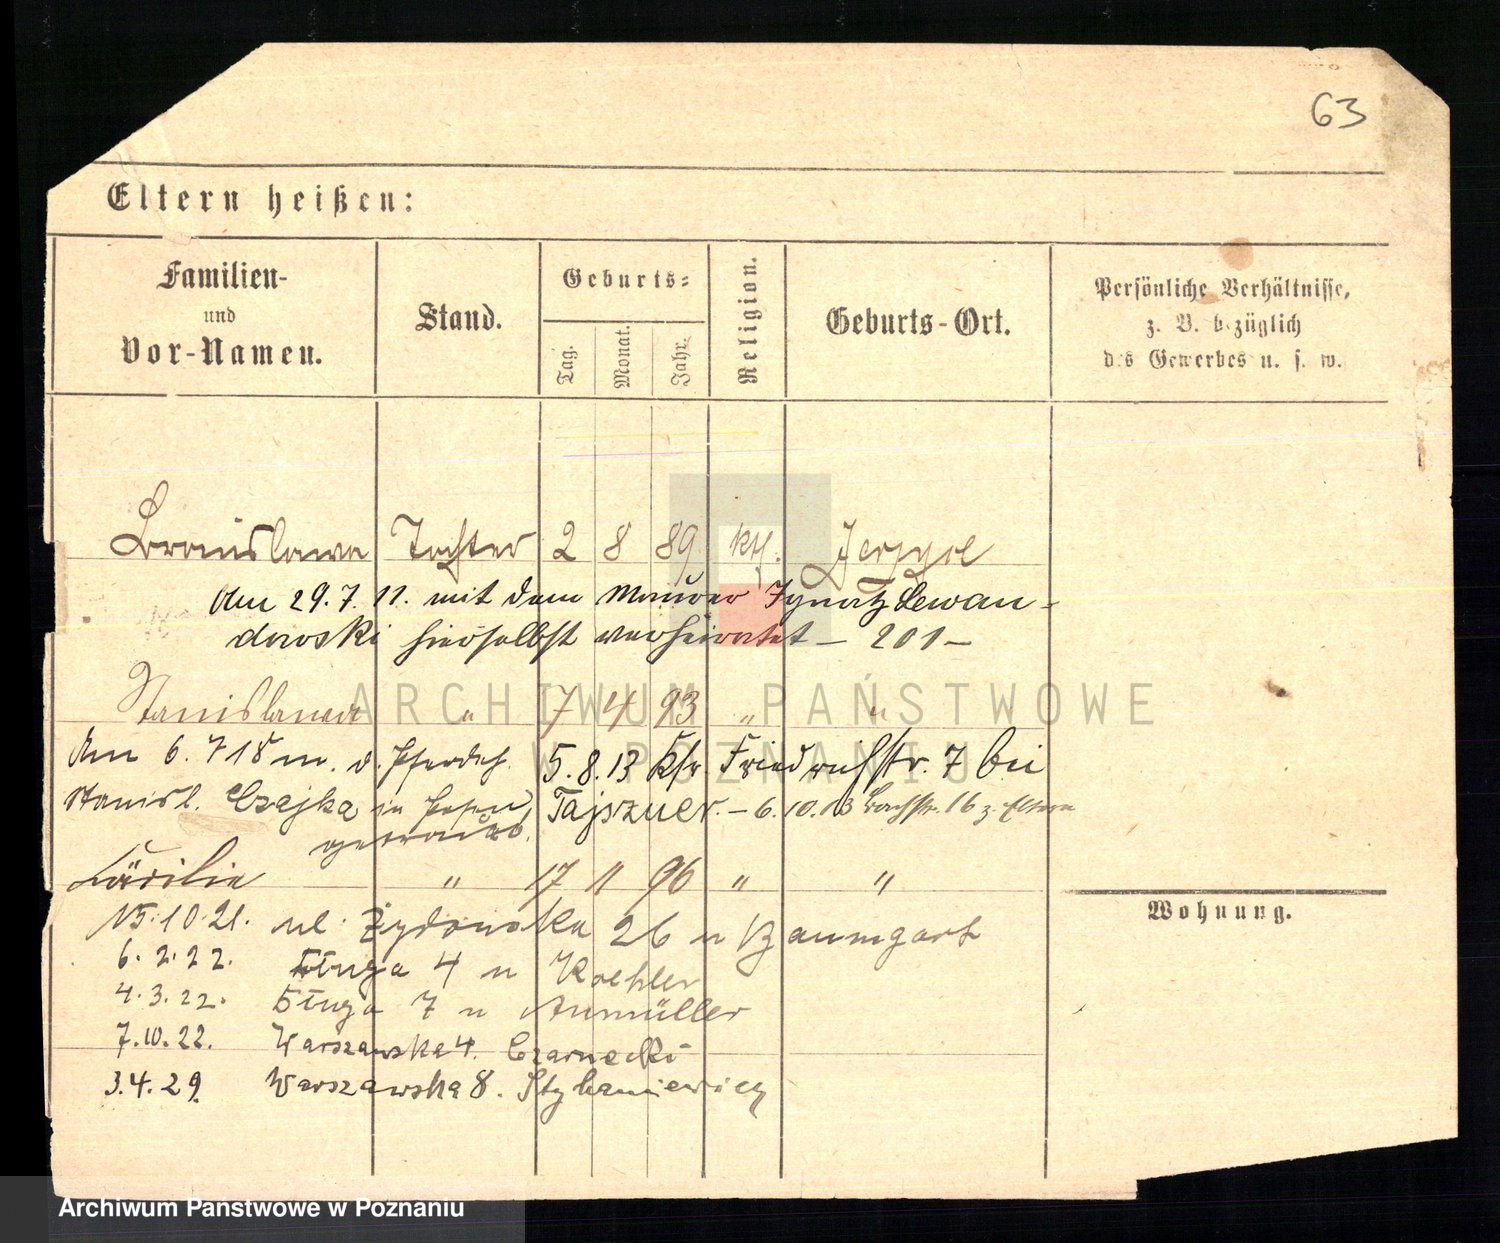 63
Eltern heißen:
Familien- und Vor-Namen.
Stand.
Geburts-
Tag.
Monat.
Jahr.
Religion.
Geburts-Ort.
Persönliche Verhältnisse,
z. B. bezüglich
des Gewerbes u. s. w.
Bronislawa Tochter 2 8 89 kth. Jerzyce
Am 29.7.11. mit dem Maurer Ignatz Lewan-
dowski hierselbst verheiratet – 201 –
Stanislawa " 7 4 93 " "
Am 6.7 18 m. d. 5.8.13 Friedrichstr. 7 bei
Stanisl. Czajka in Posen Tajszner. – 6.10.13 16 z. Eltern
getraut.
Cäcilie " 17 11 96 " "
15.10.21. ul. Żydowska 26 u Baumgart
6.2.22. Długa 4 u Koehler
4.3.22. Długa 7 u Anmüller
7.10.22. Warszawska 4. Czarnecki
3.4.29. Warszawska 8.
Wohnung.
ARCHIWUM PAŃSTWOWE
W POZNANIU
Archiwum Państwowe w Poznaniu